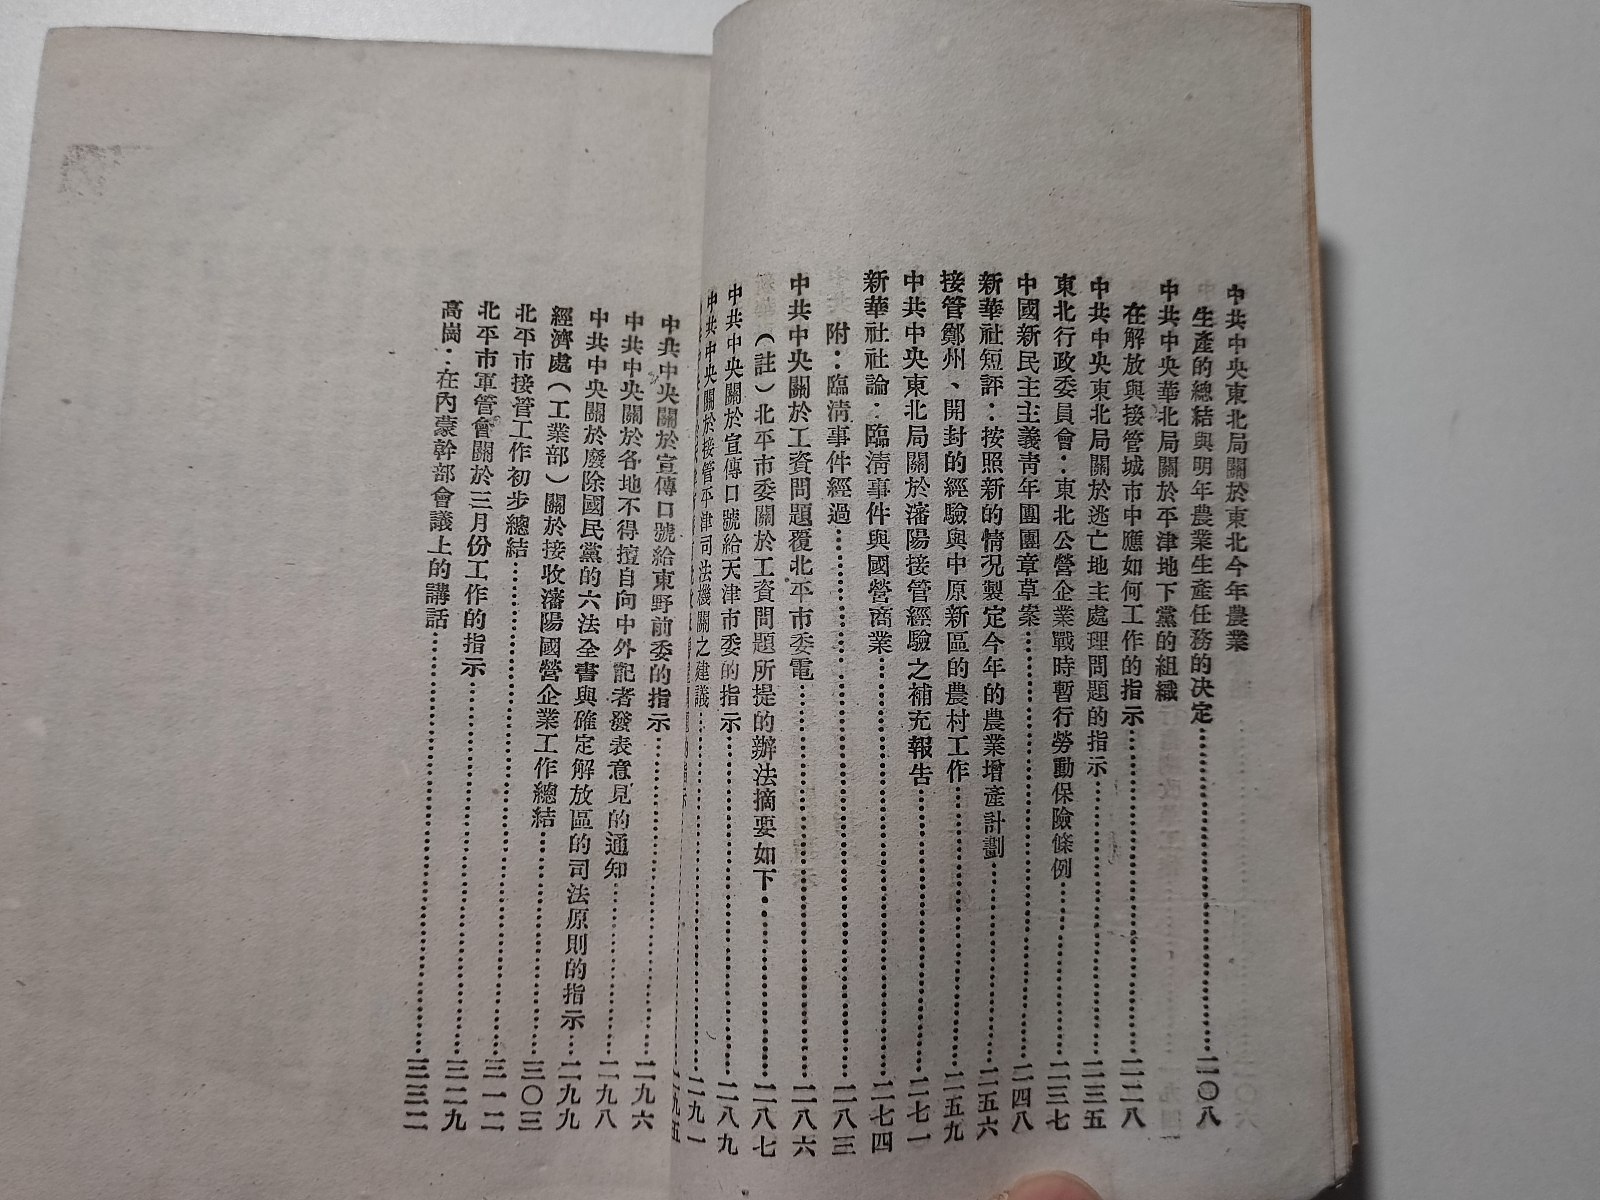 中共中央東北局關於東北今年農業
生產的總結與明年農業生產任務的决定…………二〇八
中共中央華北局關於平津地下黨的組織
在解放與接管城市中應如何工作的指示…………二二八
中共中央東北局關於逃亡地主處理問題的指示…………二三五
東北行政委員會：東北公營企業戰時暫行勞動保險條例…………二三七
中國新民主主義靑年團團章草案…………二四八
新華社短評：按照新的情况製定今年的農業增產計劃…………二五六
接管鄭州、開封的經驗與中原新區的農村工作…………二五九
中共中央東北局關於瀋陽接管經驗之補充報告…………二七一
新華社社論：臨淸事件與國營商業…………二七四
附：臨淸事件經過…………二八三
中共中央關於工資問題覆北平市委電…………二八六
（註）北平市委關於工資問題所提的辦法摘要如下…………二八七
中共中央關於宣傳口號給天津市委的指示…………二八九
中共中央關於接管平津司法機關之建議…………二九一
二九五
中共中央關於宣傳口號給東野前委的指示…………二九六
中共中央關於各地不得擅自向中外記者發表意見的通知…………二九八
中共中央關於廢除國民黨的六法全書與確定解放區的司法原則的指示…二九九
經濟處（工業部）關於接收瀋陽國營企業工作總結…………三〇三
北平市接管工作初步總結…………三一二
北平市軍管會關於三月份工作的指示…………三二九
高崗：在內蒙幹部會議上的講話…………三三二